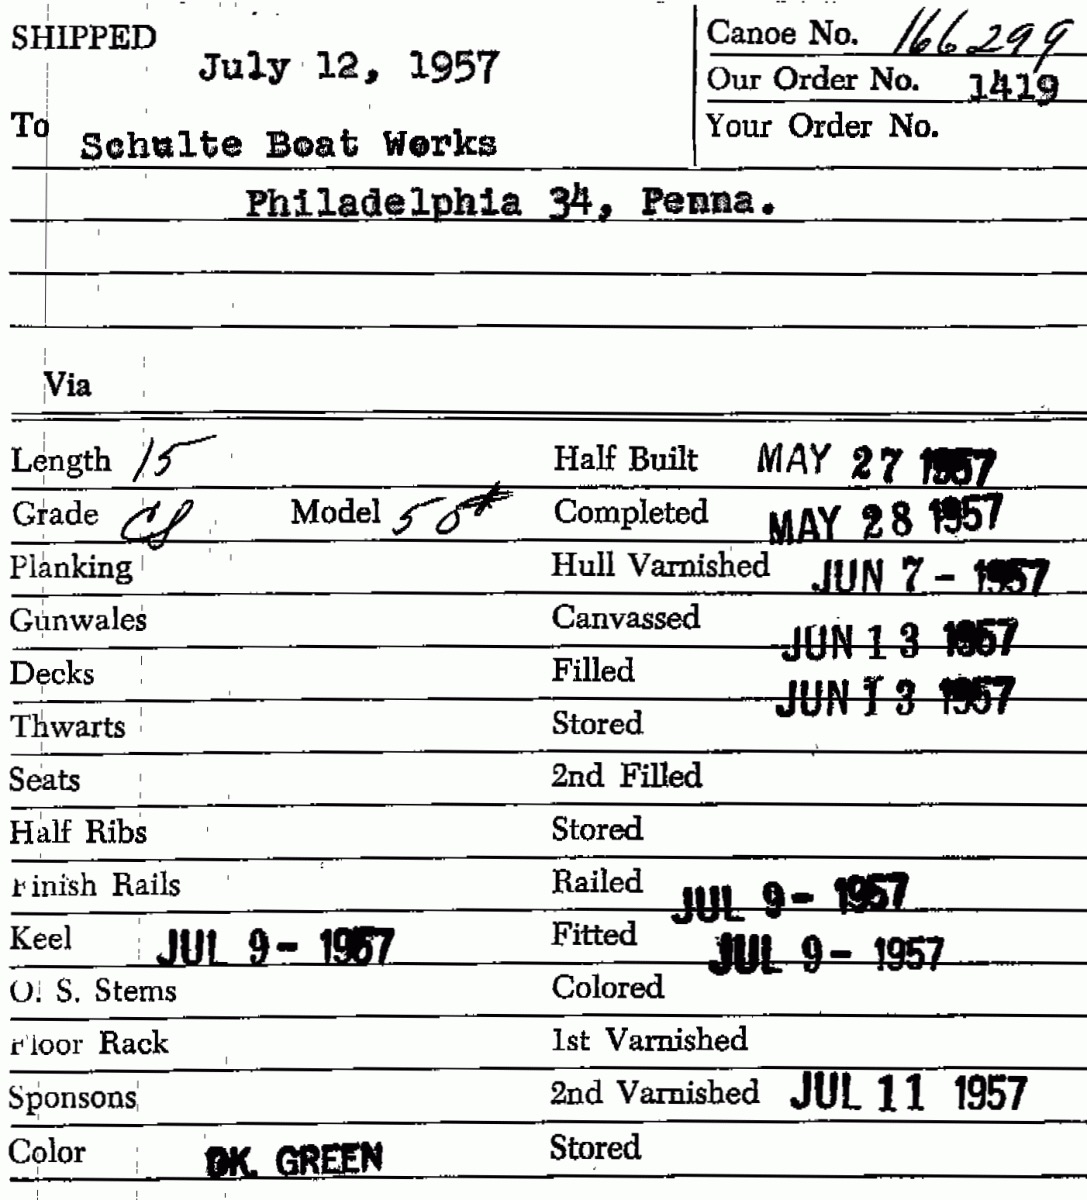 SHIPPED July 12, 1957
Canoe No. 166299
Our Order No. 1419
To Schulte Boat Works
Your Order No.
Philadelphia 34, Penna.
Via
Length 15
Half Built MAY 27 1957
Grade CS Model 50#
Completed MAY 28 1957
Planking
Hull Varnished JUN 7 - 1957
Gunwales
Canvassed JUN 13 1957
Decks
Filled JUN 13 1957
Thwarts
Stored
Seats
2nd Filled
Half Ribs
Stored
Finish Rails
Railed JUL 9 - 1957
Keel JUL 9 - 1957
Fitted JUL 9 - 1957
O. S. Stems
Colored
Floor Rack
1st Varnished
Sponsons
2nd Varnished JUL 11 1957
Color DK. GREEN
Stored